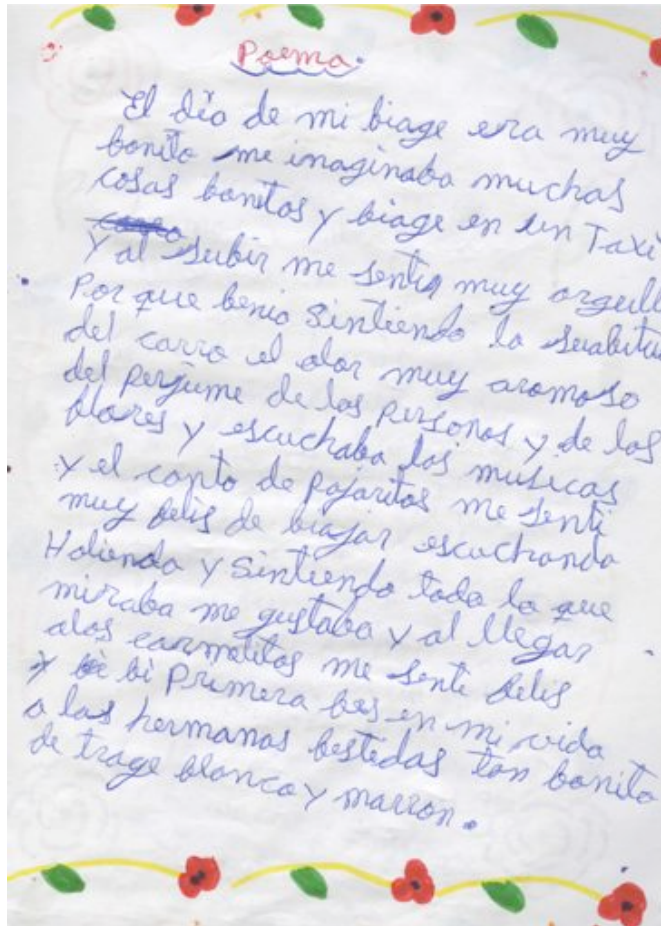 Poema.
El día de mi biage era muy
bonito me imaginaba muchas
cosas bonitas y biage en un Taxi
Y al subir me sentia muy orgull
Por que benia Sintiendo la suabitu
del carro el olor muy aromoso
del perjume de las personas y de las
flores y escuchaba las musicas
y el canto de pajaritos me senti
muy felis de biajar escuchando
Holiendo y Sintiendo todo lo que
miraba me gustaba y al llegar
alos carmelitos me senti felis
y bi Primera bes en mi vida
a las hermanas bestedas tan bonito
de trage blanco y marron.